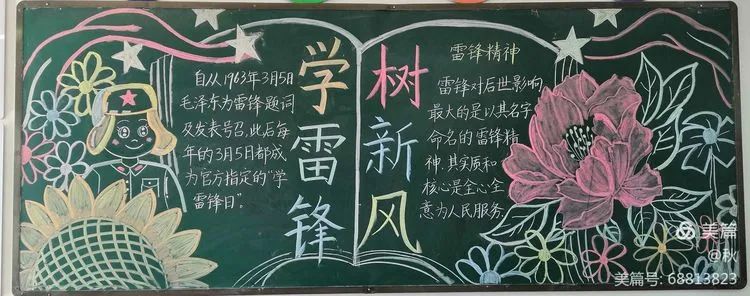 自从1963年3月5日
毛泽东为雷锋题词
及发表号召,此后每
年的3月5日都成
为官方指定的“学
雷锋日”。
学雷锋
树新风
雷锋精神
雷锋对后世影响
最大的是以其名字
命名的雷锋精
神.其实质和
核心是全心全
意为人民服务.
美篇
@秋
美篇号: 68813823